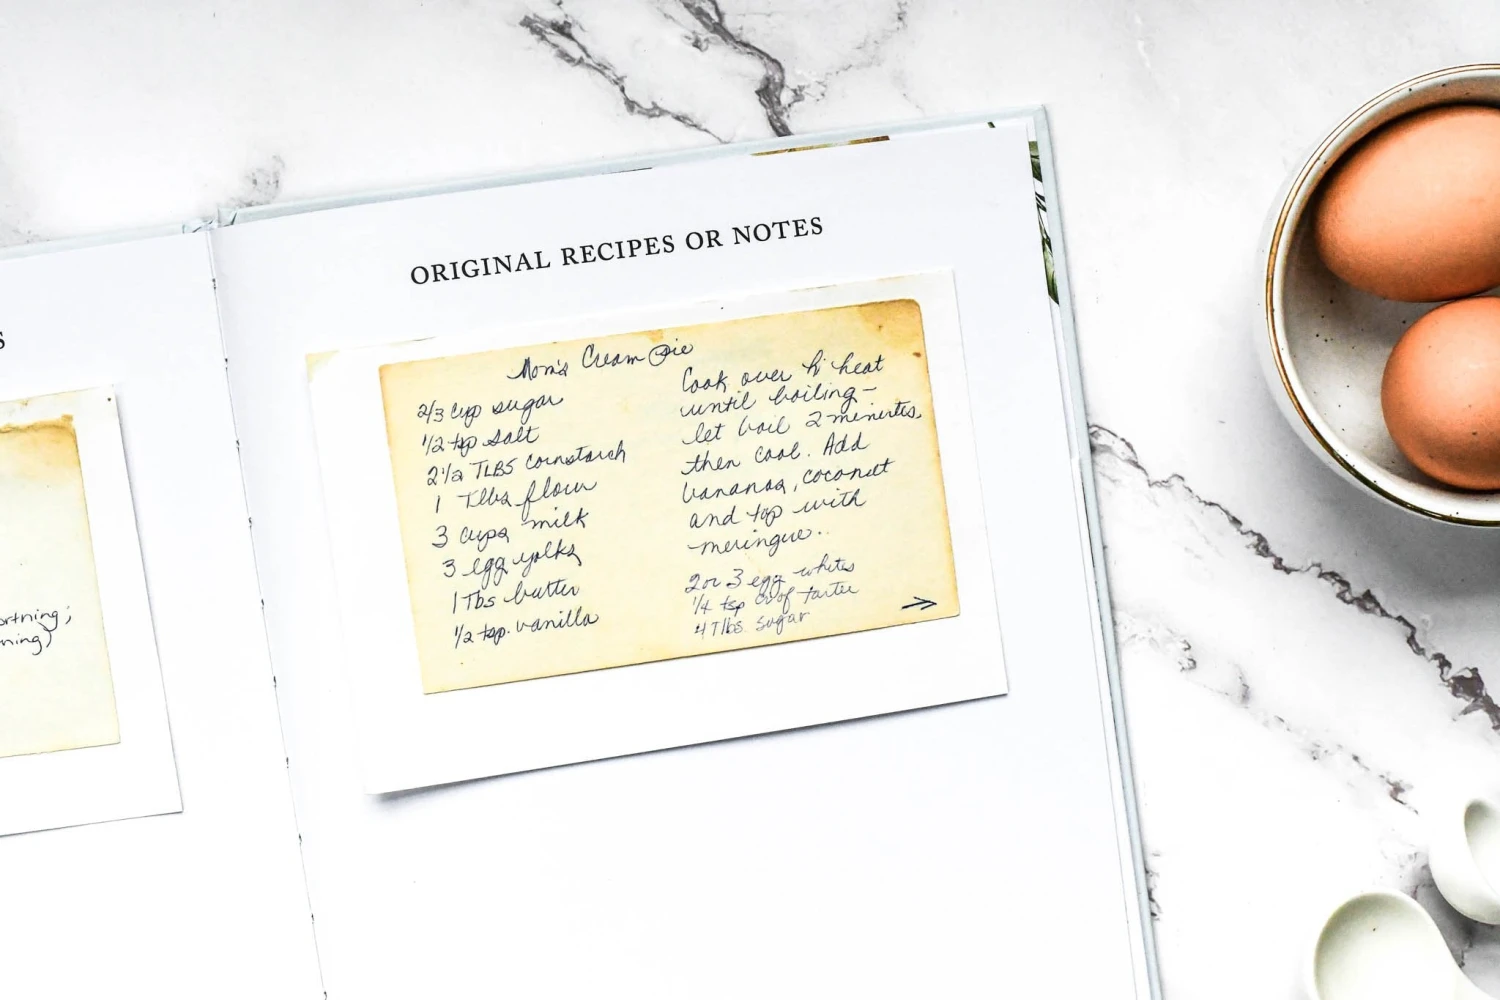 S
ortning;
ning)
ORIGINAL RECIPES OR NOTES
Mom's Cream Pie
2/3 cup sugar
1/2 tsp salt
2 1/2 TLBS cornstarch
1 Tlbs flour
3 cups milk
3 egg yolks
1 Tbs butter
1/2 tsp. vanilla
Cook over hi heat
until boiling—
let boil 2 minutes,
then cool. Add
bananas, coconut
and top with
meringue..
2 or 3 egg whites
1/4 tsp cr of tarter
4 Tlbs. sugar